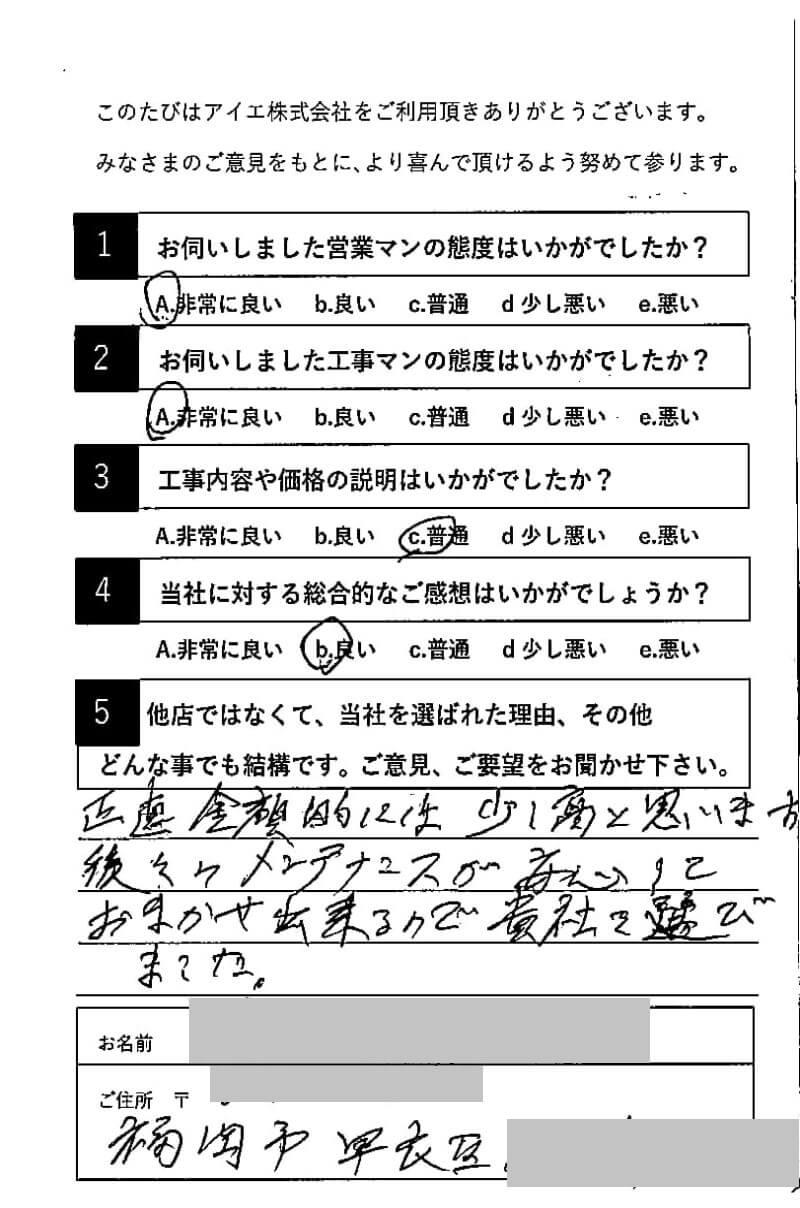 このたびはアイエ株式会社をご利用頂きありがとうございます。
みなさまのご意見をもとに、より喜んで頂けるよう努めて参ります。
1 お伺いしました営業マンの態度はいかがでしたか？
A.非常に良い b.良い c.普通 d 少し悪い e.悪い
2 お伺いしました工事マンの態度はいかがでしたか？
A.非常に良い b.良い c.普通 d 少し悪い e.悪い
3 工事内容や価格の説明はいかがでしたか？
A.非常に良い b.良い c.普通 d 少し悪い e.悪い
4 当社に対する総合的なご感想はいかがでしょうか？
A.非常に良い b.良い c.普通 d 少し悪い e.悪い
5 他店ではなくて、当社を選ばれた理由、その他
どんな事でも結構です。ご意見、ご要望をお聞かせ下さい。
正直金額的には少し高と思いますが
後々のメンテナンスが安心して
おまかせ出来るので貴社を選び
ました。
お名前
ご住所 〒
福岡市早良区